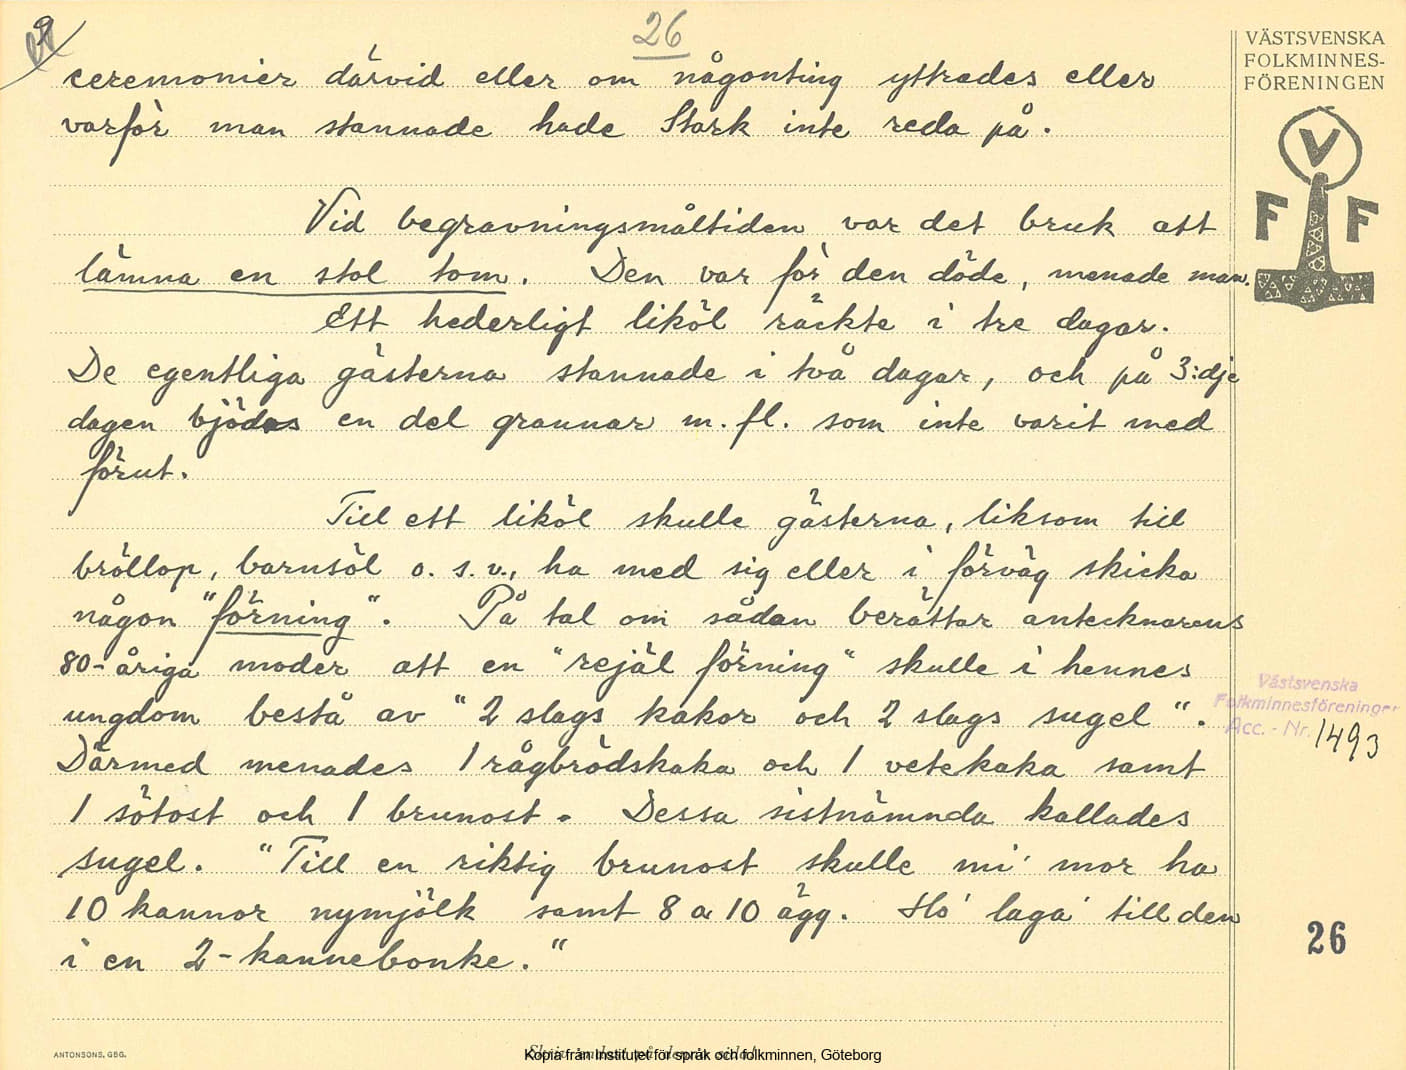 26
VÄSTSVENSKA
FOLKMINNES-
FÖRENINGEN
V
F F
ceremonier därvid eller om någonting yttrades eller
varför man stannade hade Stark inte reda på.
Vid begravningsmåltiden var det bruk att
lämna en stol tom. Den var för den döde, menade man.
Ett hederligt liköl räckte i tre dagar.
De egentliga gästerna stannade i två dagar, och på 3:dje
dagen bjödos en del grannar m. fl. som inte varit med
förut.
Till ett liköl skulle gästerna, liksom till
bröllop, barnsöl o. s. v., ha med sig eller i förväg skicka
någon "förning". På tal om sådan berättar antecknarens
80-åriga moder att en "rejäl förning" skulle i hennes
ungdom bestå av "2 slags kakor och 2 slags sugel".
Därmed menades 1 rågbrödskaka och 1 vetekaka samt
1 sötost och 1 brunost. Dessa sistnämnda kallades
sugel. "Till en riktig brunost skulle mi' mor ha
10 kannor nymjölk samt 8 a 10 ägg. Ho' laga' till den
i en 2-kannebonke."
Västsvenska
Folkminnesföreningen
Acc. - Nr. 1493
26
ANTONSONS, GBG.
Kopia från Institutet för språk och folkminnen, Göteborg